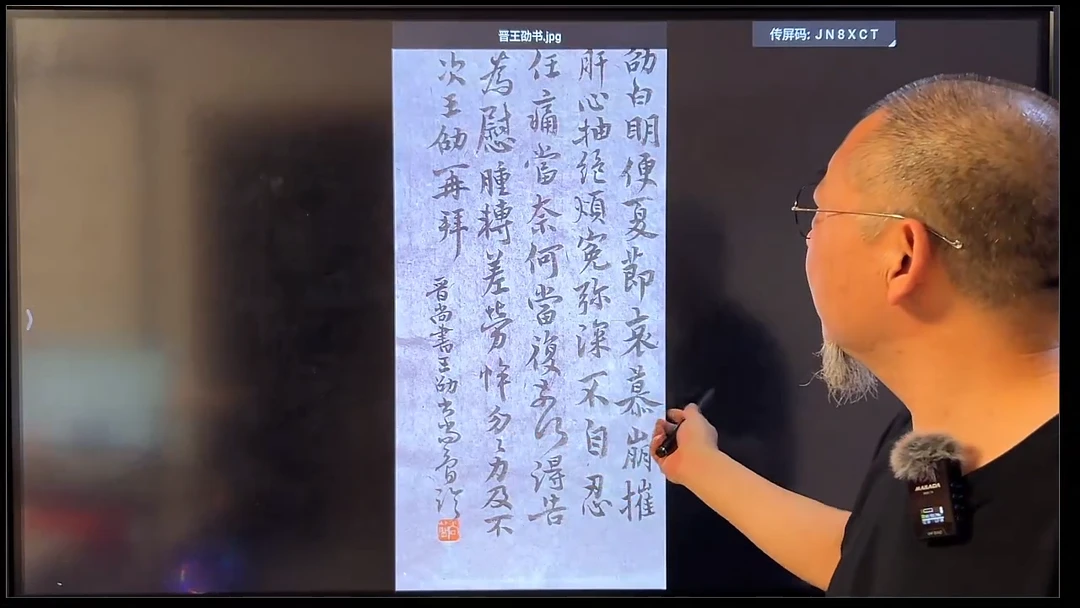 晋王劭书.jpg
传屏码: JN8XCT
劭白明便夏節哀慕崩摧
肝心抽絕煩冤弥深不自忍
任痛當奈何當復奈何得告
為慰腫轉差勞悴匆〻力及不
次王劭再拜
晋尚書王劭書